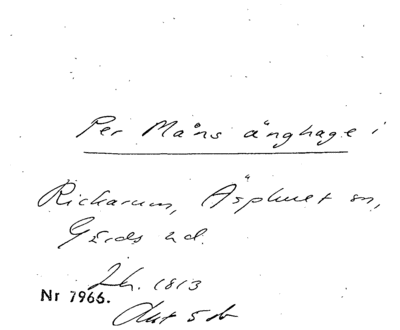 Per Måns änghage i
Rickarum, Äsphult sn,
Gärds hd.
1813
Nr 7966.
Akt 5 b